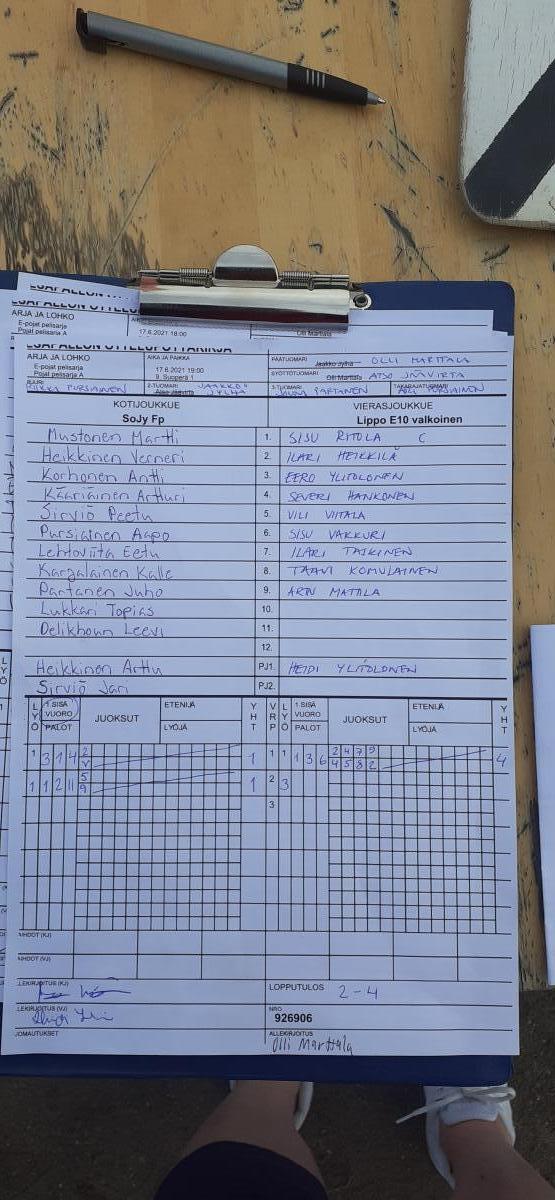 ARJA JA LOHKO
E-pojat pelisarja
Pojat pelisarja A
17.6.2021 18:00
Olli Marttala
ARJA JA LOHKO
E-pojat pelisarja
Pojat pelisarja A
AIKA JA PAIKKA
17.6.2021 19:00
9. Superpesä 1
PÄÄTUOMARI Jaakko Jylhä OLLI MARTTALA
SYÖTTÖTUOMARI Olli Marttala ATSO JÄÄVIRTA
PURSIAINEN
2-TUOMARI JAAKKO JYLHÄ
Atso Jäävirta
3-TUOMARI PARTANEN
TAKARAJATUOMARI PURSIAINEN
KOTIJOUKKUE
SoJy Fp
VIERASJOUKKUE
Lippo E10 valkoinen
Mustonen Martti 1. SISU RITOLA C
Heikkinen Verneri 2. ILARI HEIKKILÄ
Korhonen Antti 3. EERO YLITOLONEN
Kääriäinen Artturi 4. SEVERI HANKONEN
Sirviö Peetu 5. VILI VIITALA
Pursiainen Aapo 6. SISU VAKKURI
Lehtoviita Eetu 7. ILARI TAIKINEN
Karjalainen Kalle 8. TAAVI KOMULAINEN
Partanen Juho 9. ARTU MATTILA
Lukkari Topias 10.
Delikhoun Leevi 11.
12.
Heikkinen Arttu PJ1. HEIDI YLITOLONEN
Sirviö Jari PJ2.
LYÖ 1.SISÄ VUORO PALOT JUOKSUT ETENIJÄ LYÖJÄ YHT VRP LYÖ 1.SISÄ VUORO PALOT JUOKSUT ETENIJÄ LYÖJÄ YHT
1 3 1 4 2 1 1 1 1 3 6 2 4 7 9 4
V 4 5 8 2
1 1 2 11 5 1 2 3
9
3
LOPPUTULOS 2-4
NRO
926906
ALLEKIRJOITUS
Olli Marttala